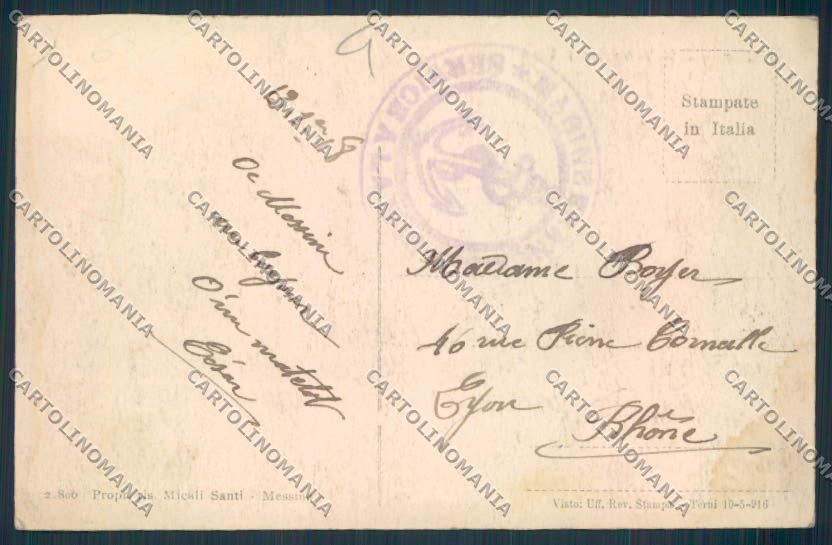 CARTOLINOMANIA
13
De Messine
Stampate
in Italia
SERVICE A LA
Madame Boyer
46 rue Pierre Corneille
Lyon
Rhône
D'un matelot
César
2 800 Propr. ris. Micali Santi - Messina
Visto: Uff. Rev. Stampa - Terni 10-5-916